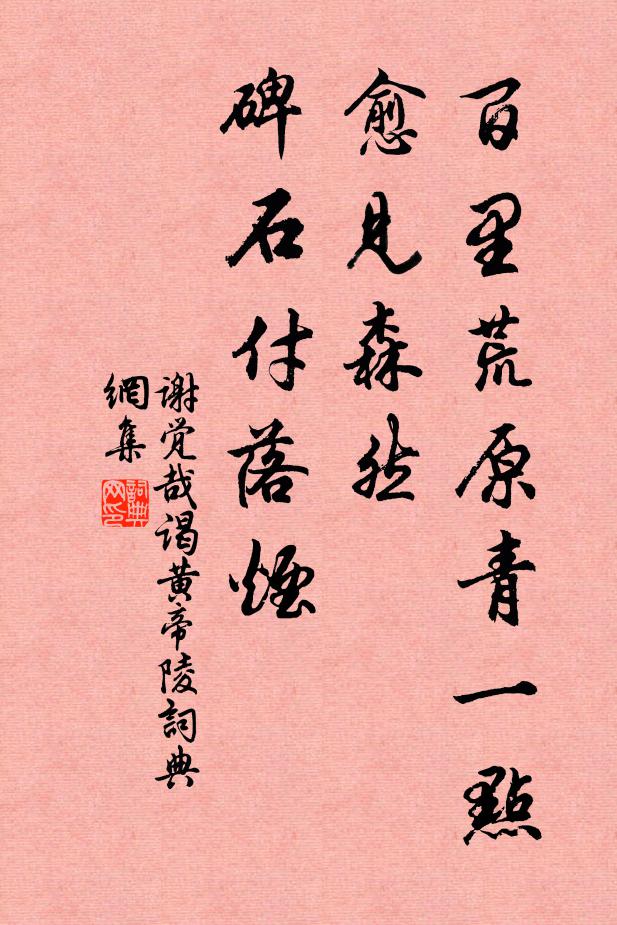 百里荒原青一點
愈見森然
碑石付落煙
谢觉哉谒黄帝陵詞典
網集
詞典网印